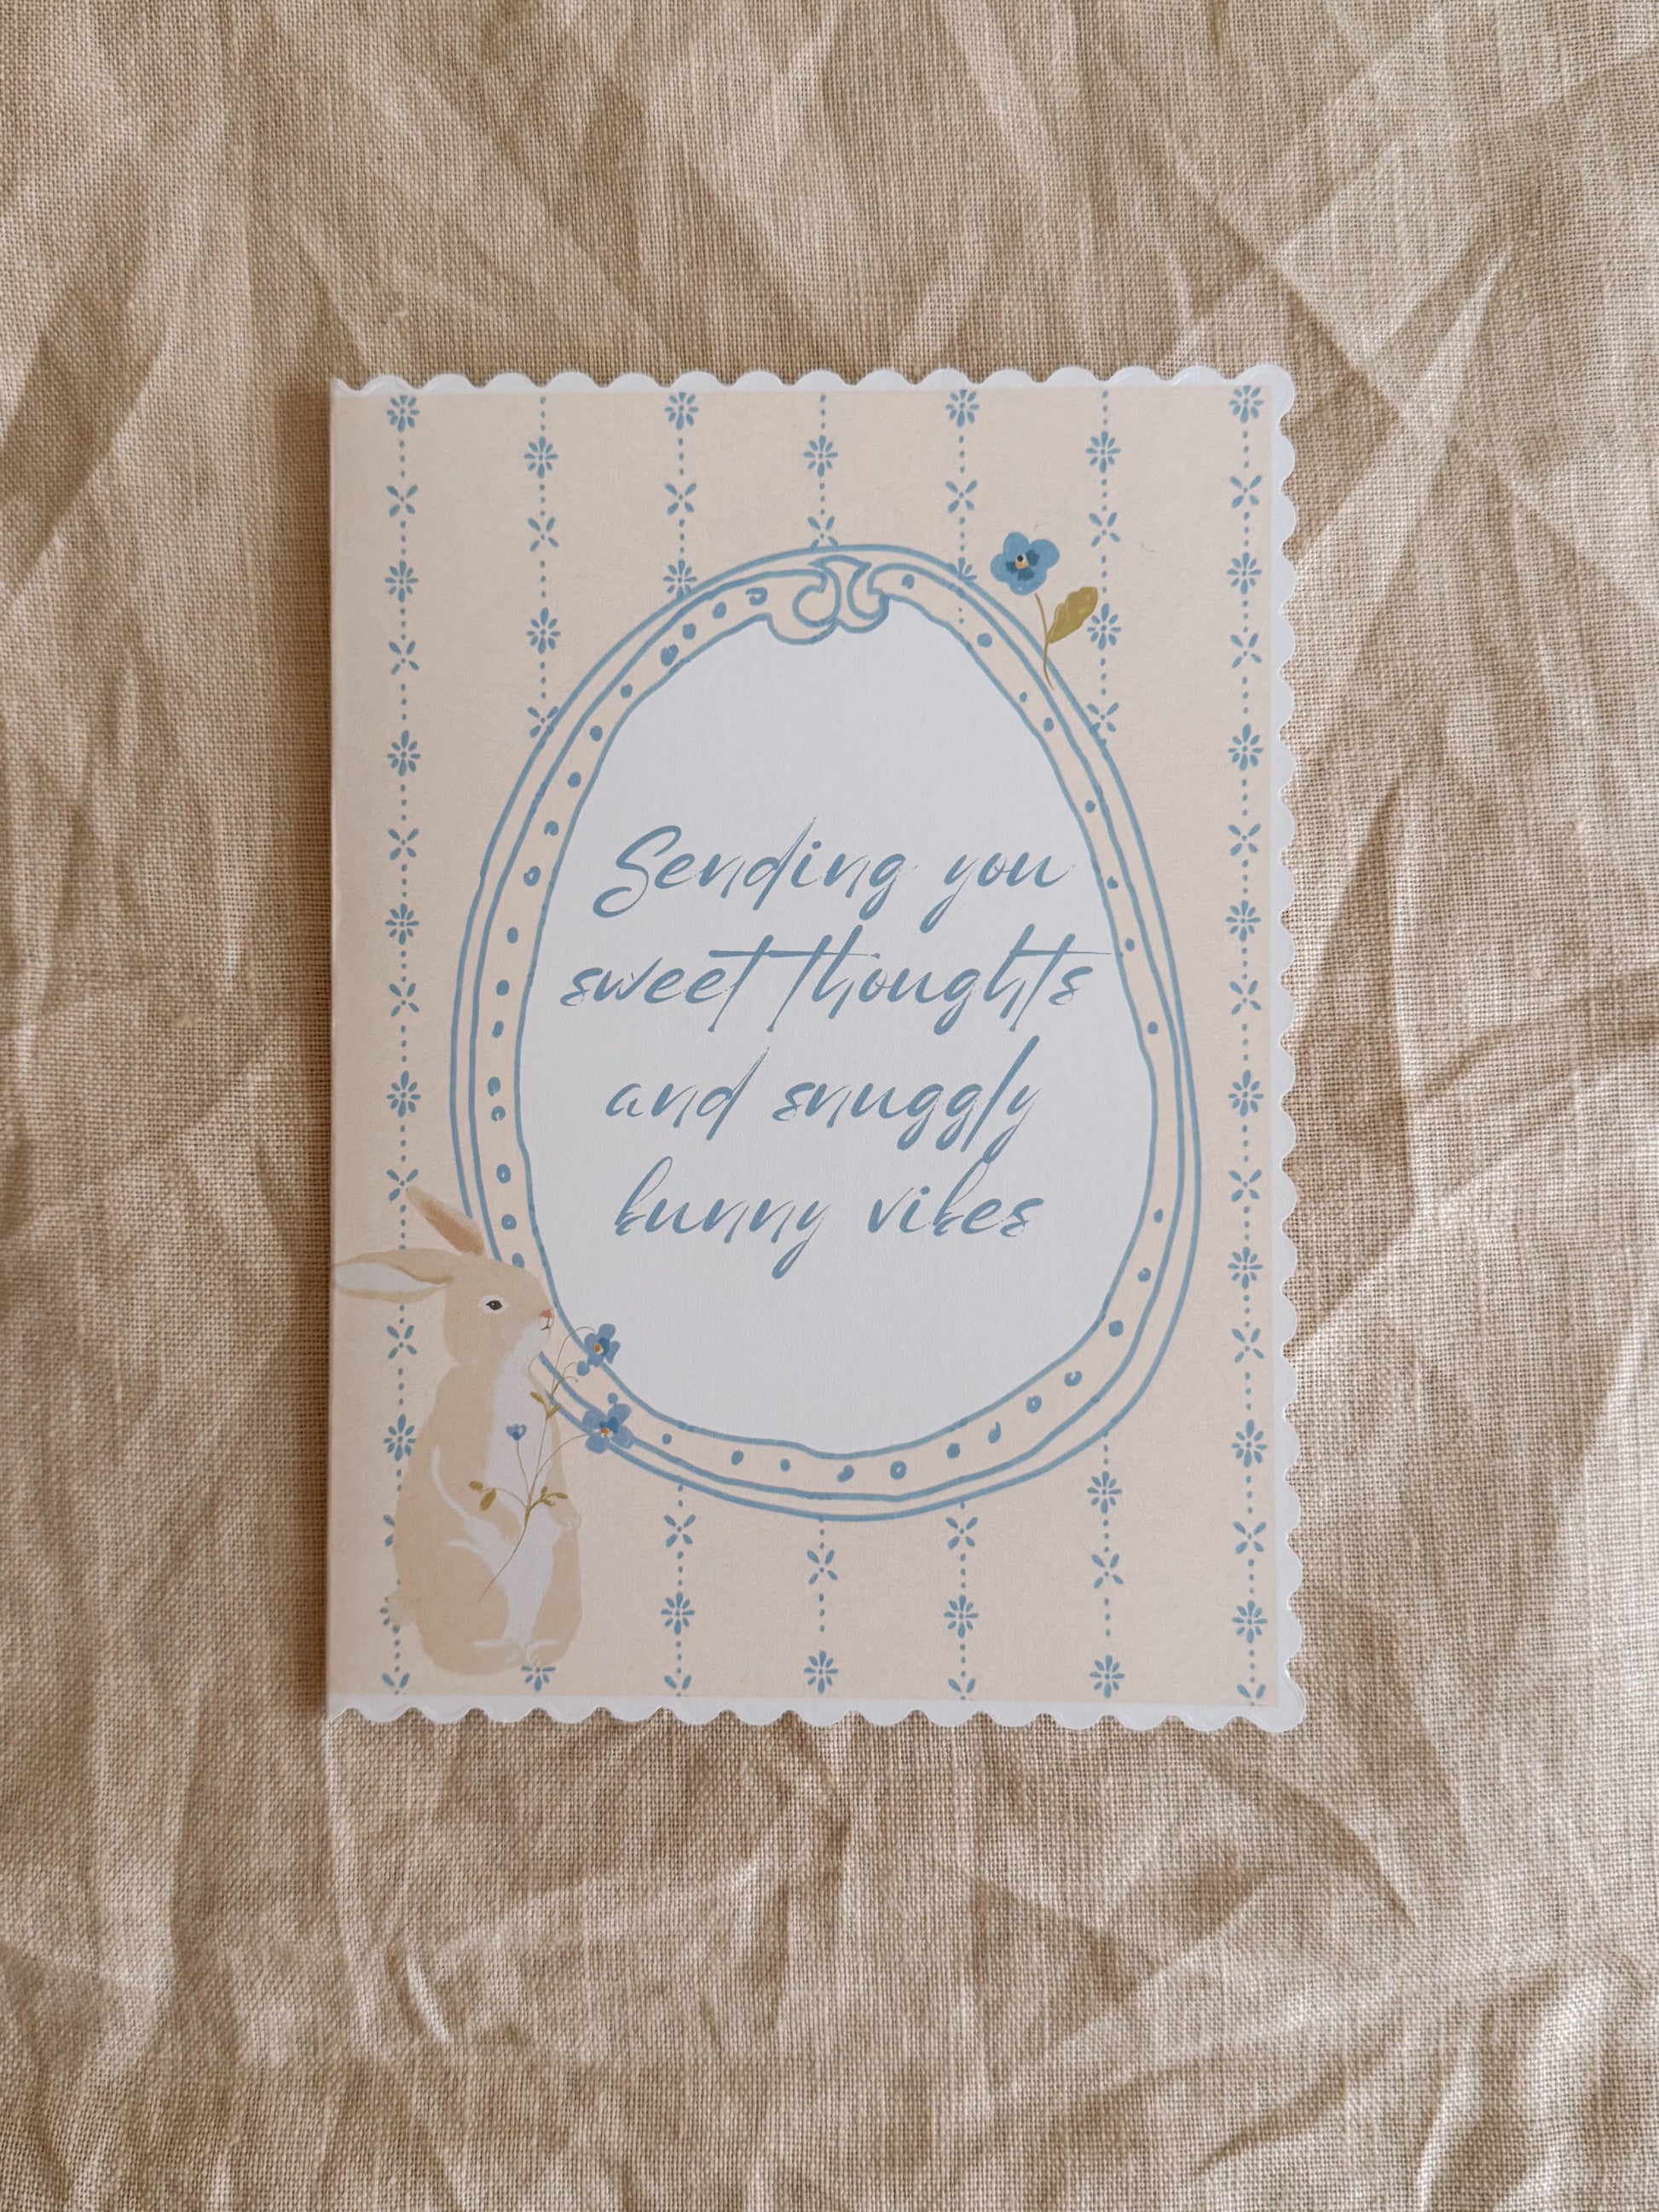 Sending you
sweet thoughts
and snuggly
bunny vibes